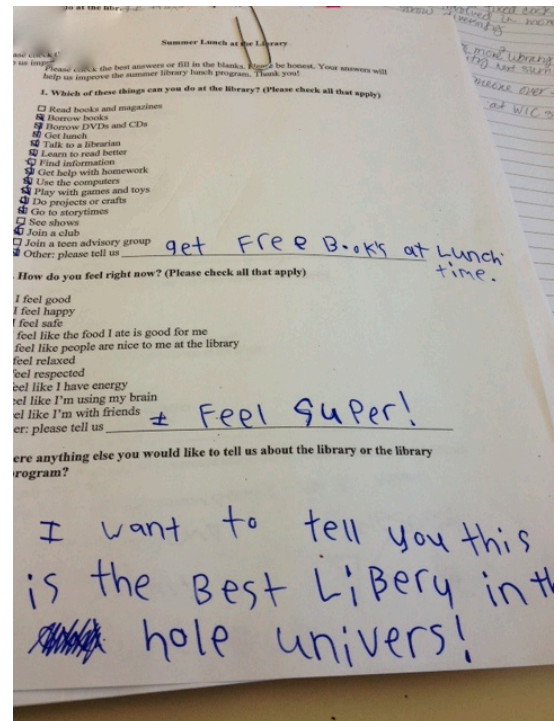 Summer Lunch at the Library
Please check the best answers or fill in the blanks. Please be honest. Your answers will
help us improve the summer library lunch program. Thank you!
1. Which of these things can you do at the library? (Please check all that apply)
Read books and magazines
Borrow books
Borrow DVDs and CDs
Get lunch
Talk to a librarian
Learn to read better
Find information
Get help with homework
Use the computers
Play with games and toys
Do projects or crafts
Go to storytimes
See shows
Join a club
Join a teen advisory group
Other: please tell us get Free Books at Lunch
time.
How do you feel right now? (Please check all that apply)
I feel good
I feel happy
I feel safe
feel like the food I ate is good for me
feel like people are nice to me at the library
feel relaxed
feel respected
eel like I have energy
el like I'm using my brain
el like I'm with friends
er: please tell us I Feel Super!
ere anything else you would like to tell us about the library or the library
rogram?
I want to tell you this
is the Best LiBery in th
hole univers!